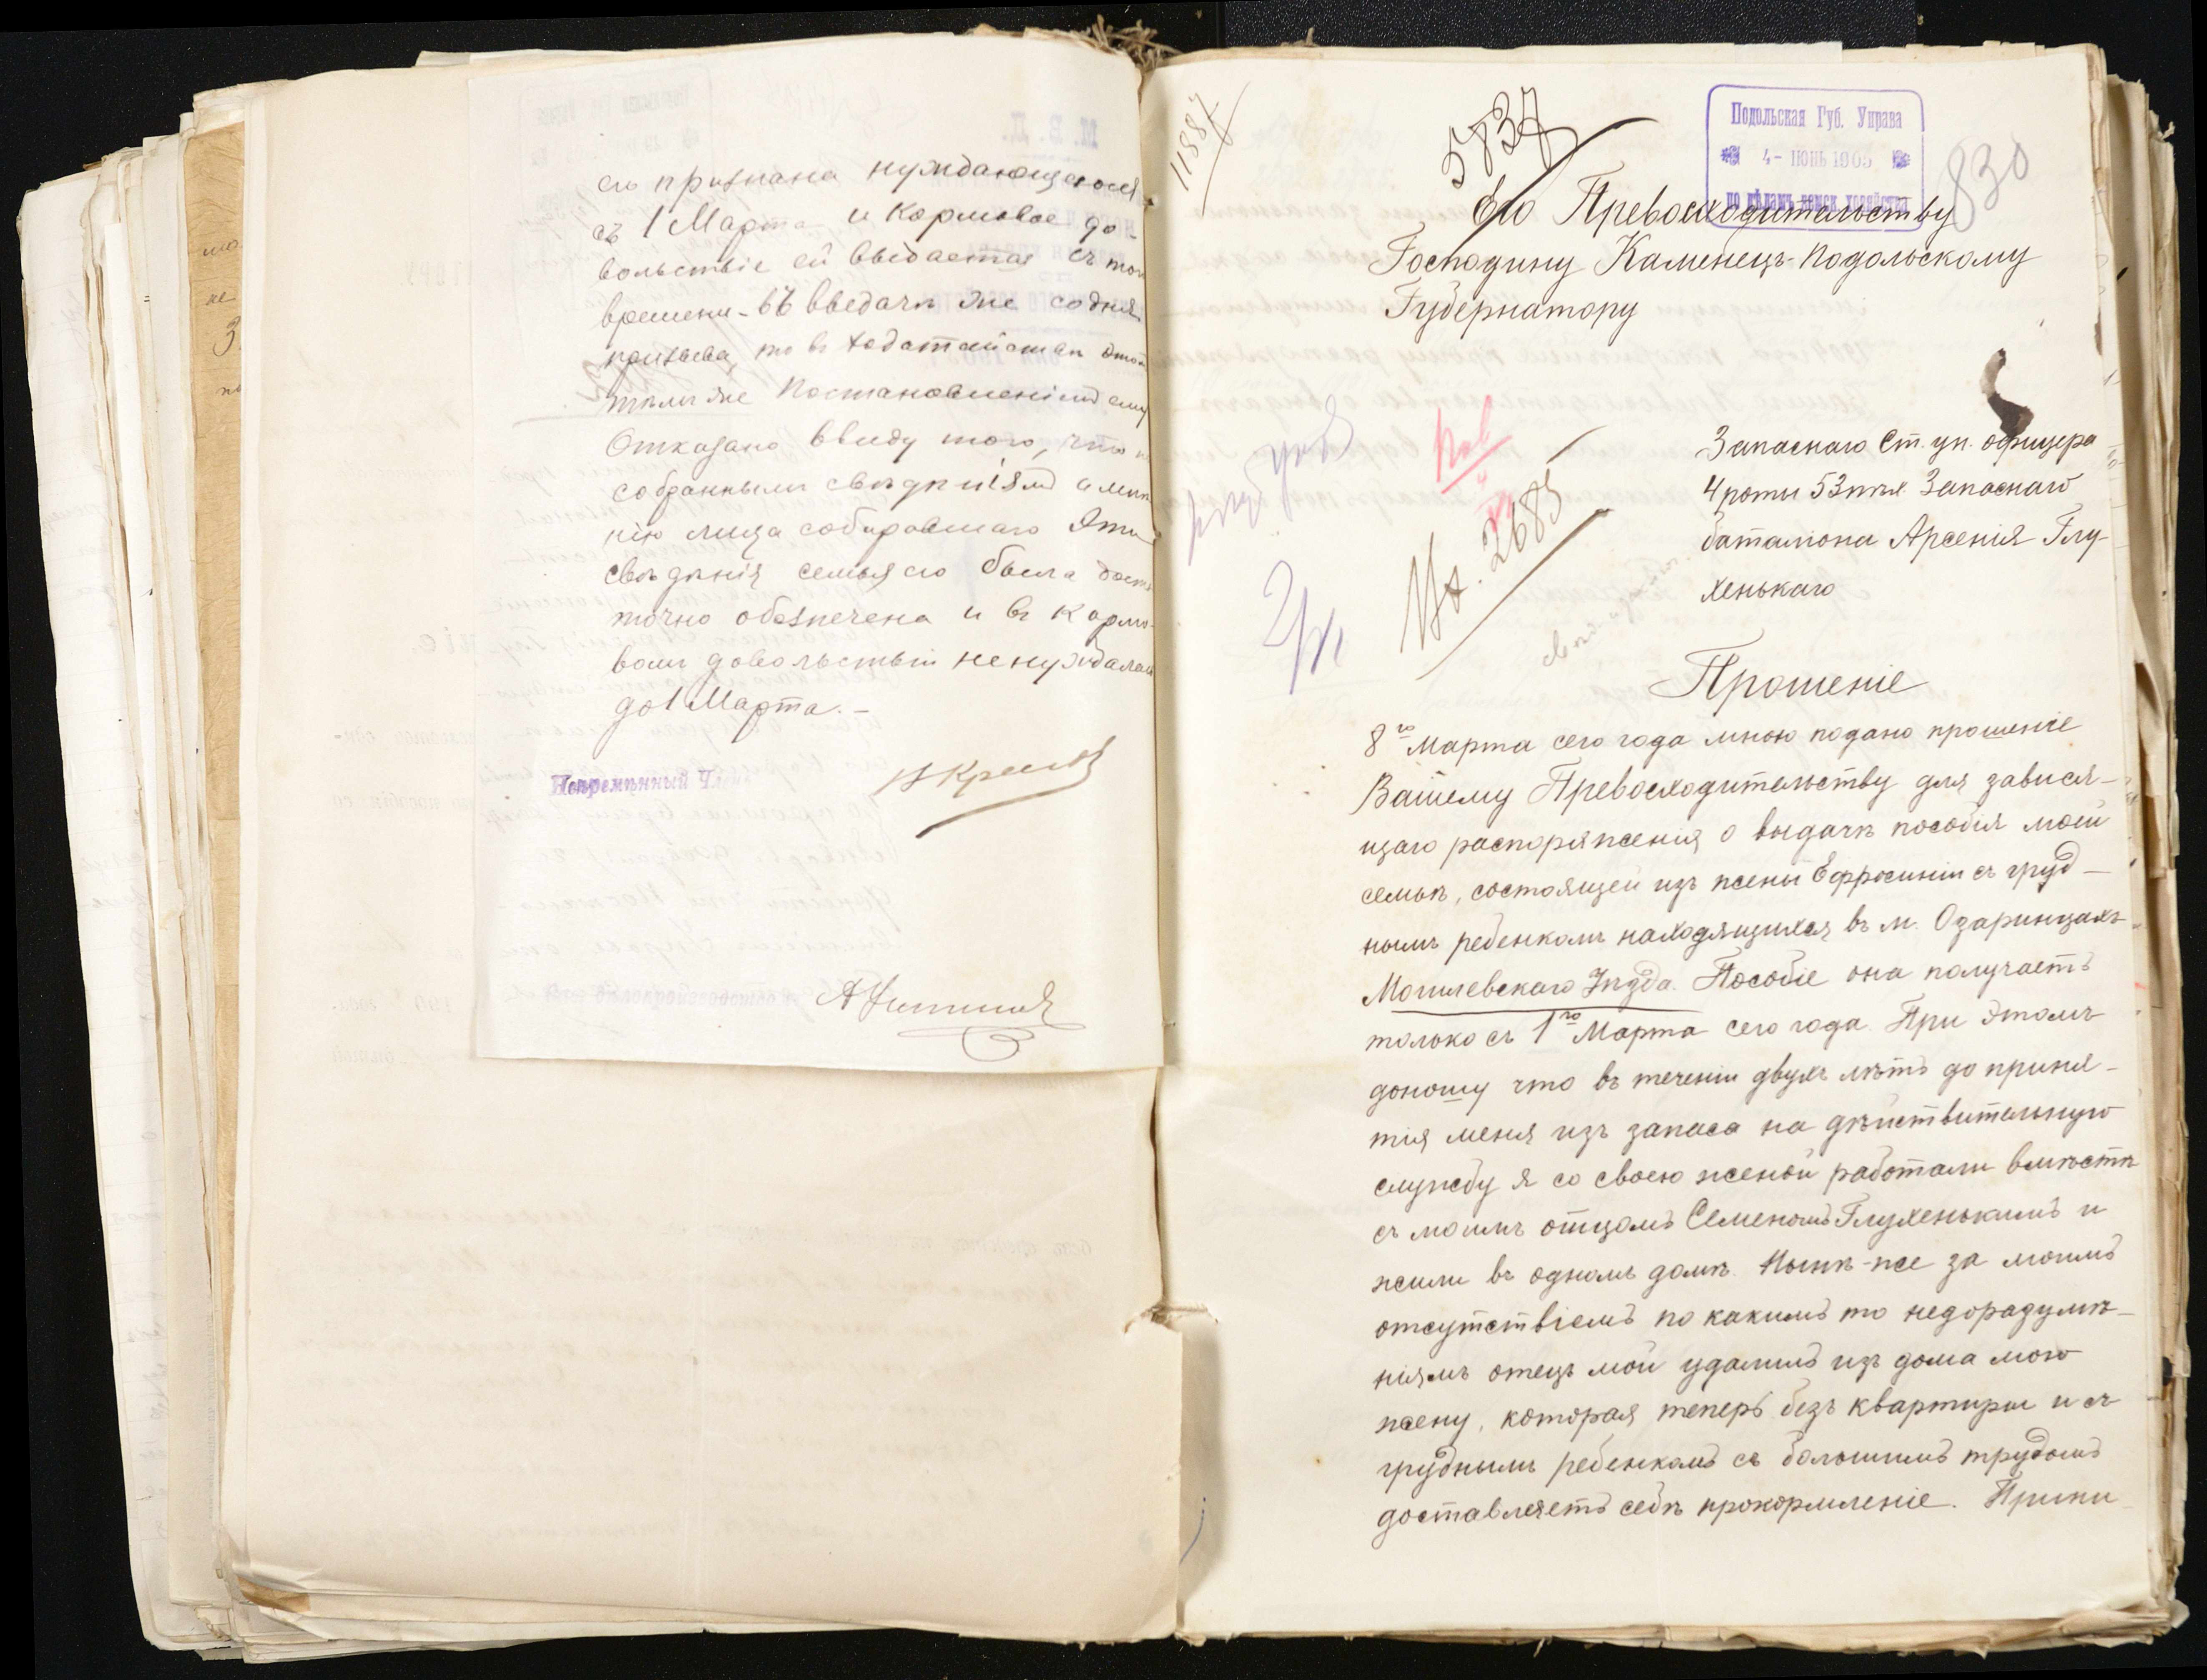 его признана нуждающеюся
съ 1 Марта и Кормовое до-
вольствіе ей выдается съ того
времени - въ выдачѣ же со дня
призыва, то въ ходатайствѣ этомъ
тѣмъ же Постановленіемъ ему
Отказано ввиду того, что по
собраннымъ свѣдѣніямъ и мнѣ-
нію лица собиравшаго эти
свѣдѣнія семья его была доста-
точно обезпечена и въ Кормо-
вомъ довольствіи не нуждалась
до 1 Марта. -
Непремѣнный Членъ
11887
5837
Подольская Губ. Управа
4 - ІЮНЬ 1905
по дѣламъ земск. хозяйства
830
Его Превосходительству
Господину Каменецъ-Подольскому
Губернатору
Запаснаго Ст. ун. офицера
4 роты 53 пѣх. Запаснаго
баталіона Арсенія Глу-
хенькаго
2685
Прошеніе
8го Марта сего года мною подано прошеніе
Вашему Превосходительству для завися-
щаго распоряженія о выдачѣ пособія моей
семьѣ, состоящей изъ жены Ефросиніи съ груд-
нымъ ребенкомъ находящихся въ м. Озаринцахъ
Могилевскаго Уѣзда. Пособіе она получаетъ
только съ 1го Марта сего года. При этомъ
доношу что въ теченіи двухъ лѣтъ до приня-
тія меня изъ запаса на дѣйствительную
службу я со своею женой работали вмѣстѣ
съ моимъ отцомъ Семеномъ Глухенькимъ и
жили въ одномъ домѣ. Нынѣ-же за моимъ
отсутствіемъ по какимъ то недоразумѣ-
ніямъ отецъ мой удалилъ изъ дома мою
жену, которая теперь безъ квартиры и съ
груднымъ ребенкомъ съ большимъ трудомъ
доставляетъ себѣ прокормленіе. Прини